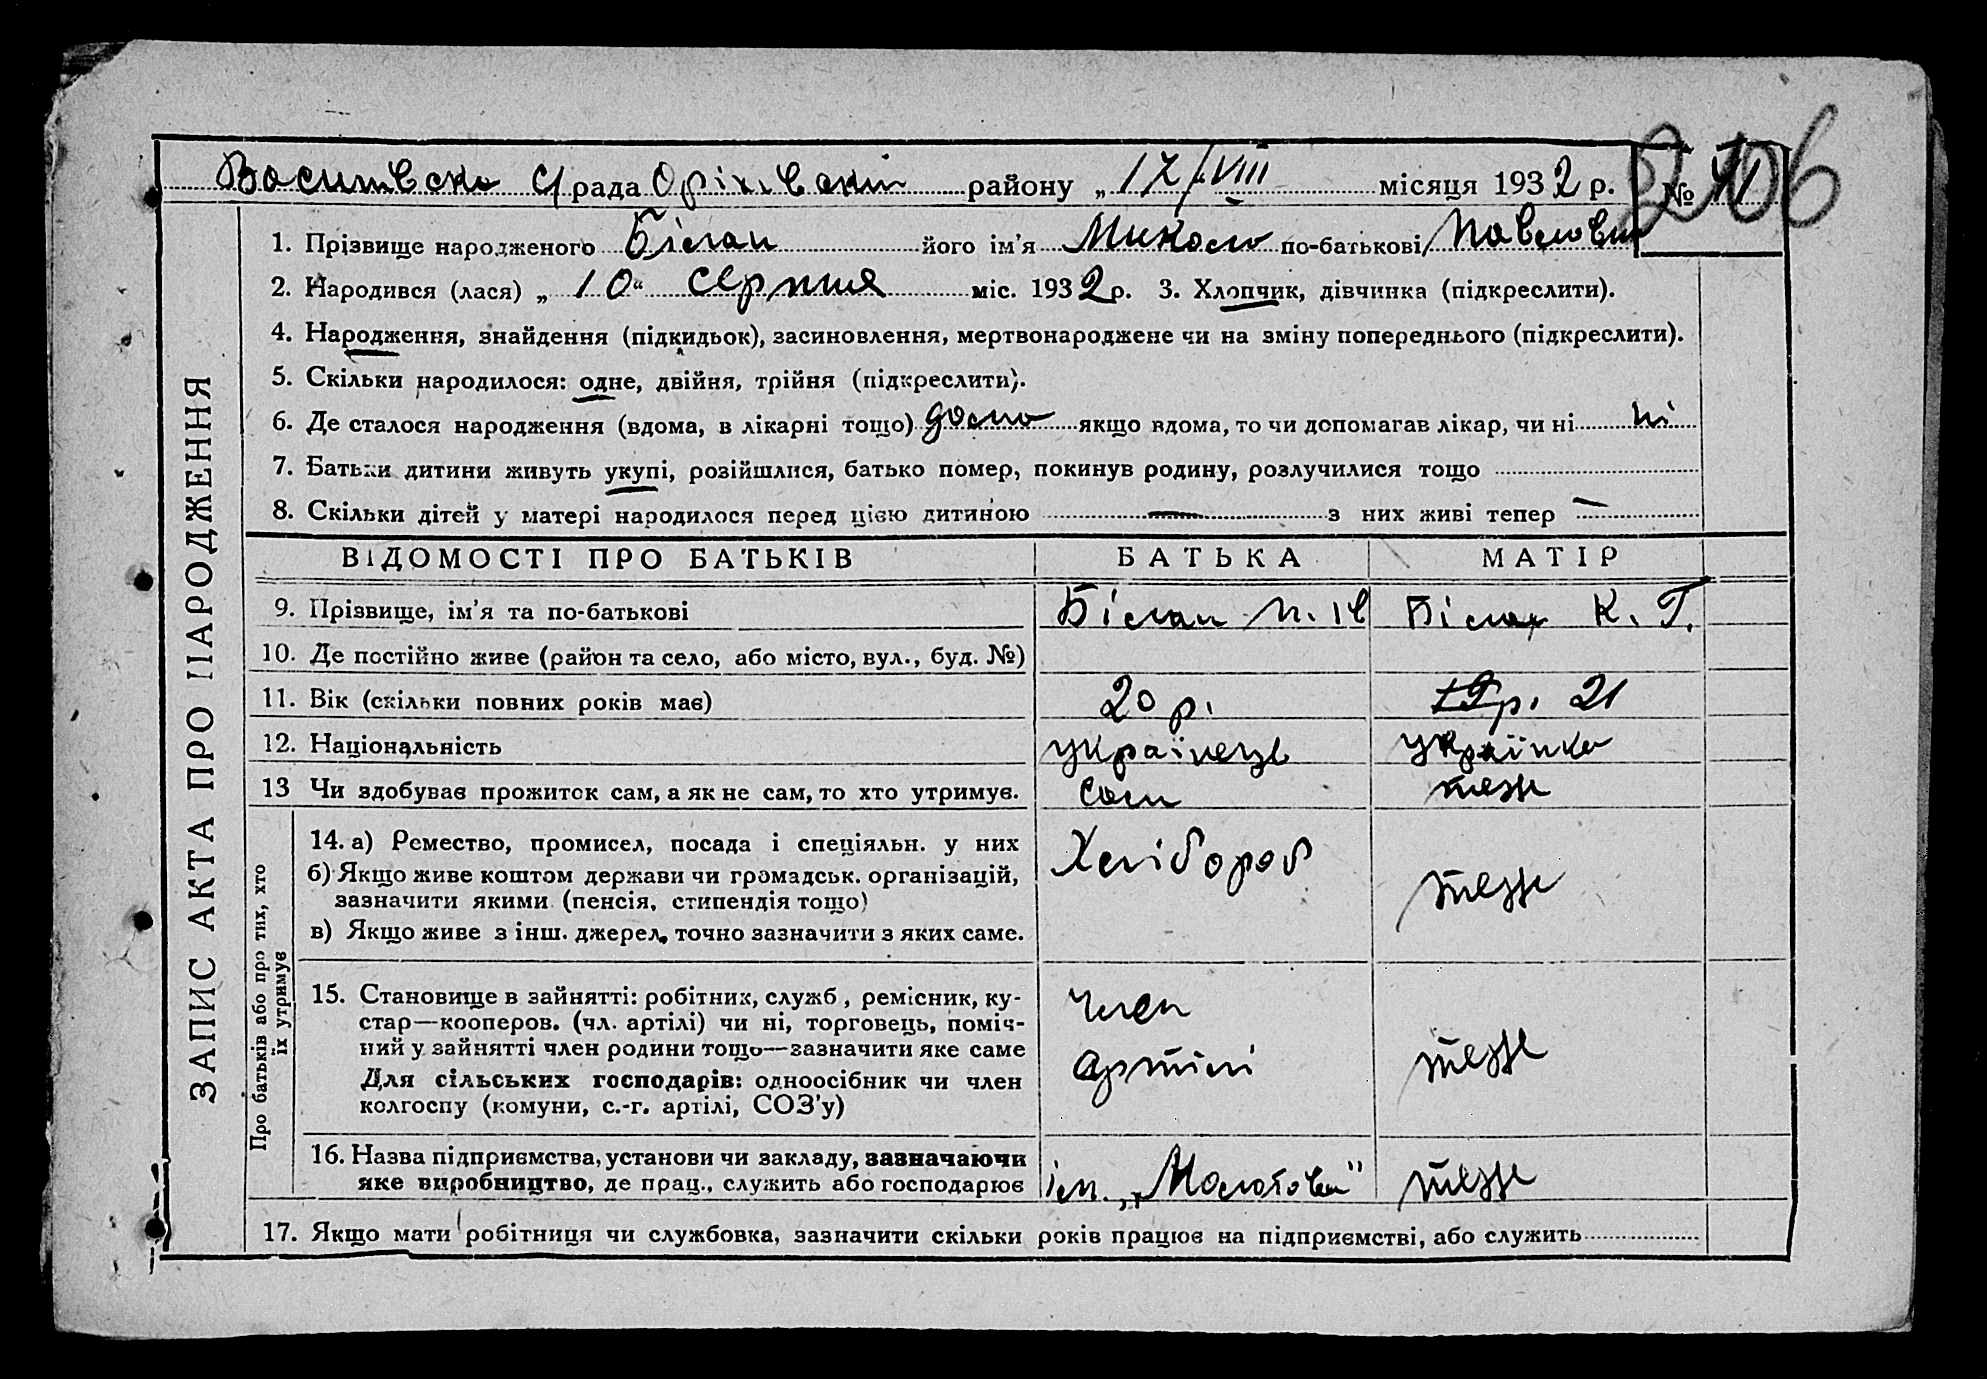 Василівська с/рада Оріхівський району „ 17/VIII місяця 1932 р. № 41
206
1. Прізвище народженого Білан його ім’я Микола по-батькові Павлович
2. Народився (лася) „ 10 “ серпня міс. 1932 р. 3. Хлопчик, дівчинка (підкреслити).
4. Народження, знайдення (підкидьок), засиновлення, мертвонароджене чи на зміну попереднього (підкреслити).
5. Скільки народилося: одне, двійня, трійня (підкреслити).
6. Де сталося народження (вдома, в лікарні тощо) дома якщо вдома, то чи допомагав лікар, чи ні ні
7. Батьки дитини живуть укупі, розійшлися, батько помер, покинув родину, розлучилися тощо
8. Скільки дітей у матері народилося перед цією дитиною — з них живі тепер —
ЗАПИС АКТА ПРО НАРОДЖЕННЯ
ВІДОМОСТІ ПРО БАТЬКІВ БАТЬКА МАТІР
9. Прізвище, ім’я та по-батькові Білан П. Ів Білан К. Г.
10. Де постійно живе (район та село, або місто, вул., буд. №)
11. Вік (скільки повних років має) 20 р. 19 р. 21
12. Національність українець українка
13 Чи здобував прожиток сам, а як не сам, то хто утримує. сам теж
Про батьків або про тих, хто
їх утримує
14. а) Ремество, промисел, посада і спеціяльн. у них Хлібороб теж
б) Якщо живе коштом держави чи громадськ. організацій,
зазначити якими (пенсія, стипендія тощо)
в) Якщо живе з інш. джерел, точно зазначити з яких саме.
15. Становище в зайнятті: робітник, служб., ремісник, ку- член
стар—кооперов. (чл. артілі) чи ні, торговець, поміч-
ний у зайнятті член родини тощо—зазначити яке саме артілі теж
Для сільських господарів: одноосібник чи член
колгоспу (комуни, с.-г. артілі, СОЗ’у)
16. Назва підприємства, установи чи закладу, зазначаючи
яке виробництво, де прац., служить або господарює ім. „Молотова" теж
17. Якщо мати робітниця чи службовка, зазначити скільки років працює на підприємстві, або служить